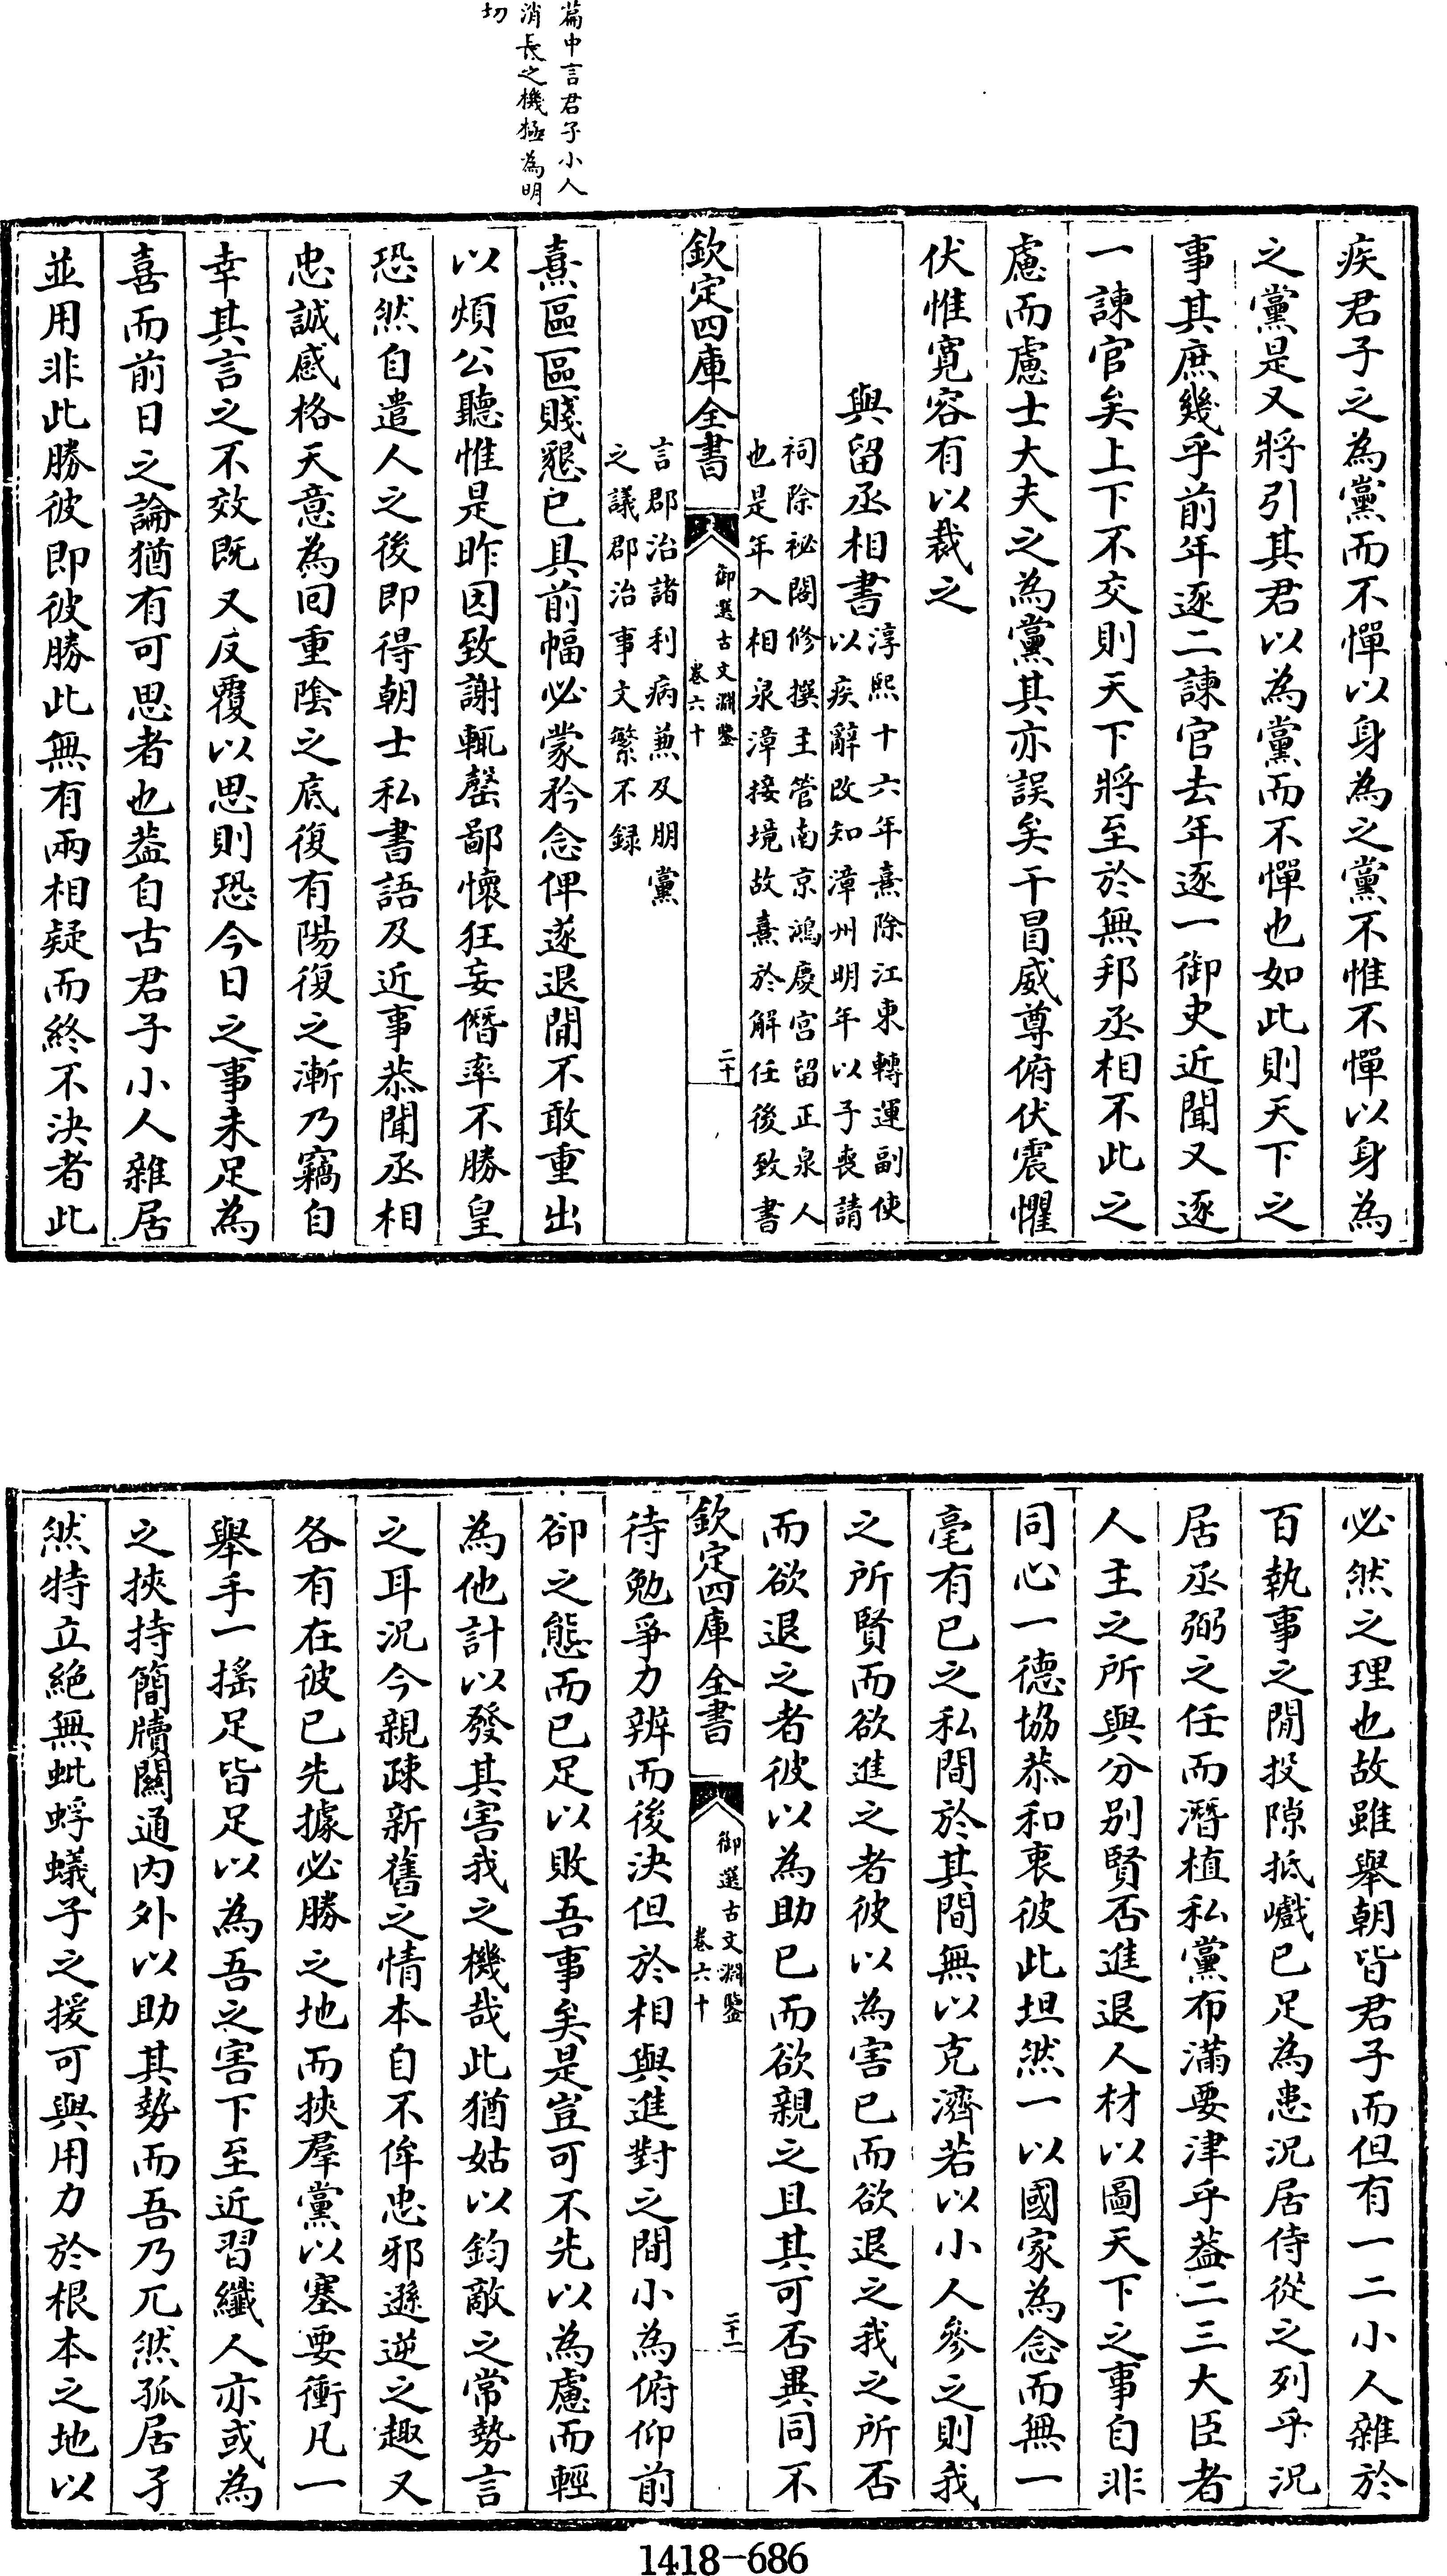 篇中言君子小人
消長之機極為明
切
疾君子之為黨而不憚以身為之黨不惟不憚以身為
之黨是又將引其君以為黨而不憚也如此則天下之
事其庶幾乎前年逐二諫官去年逐一御史近聞又逐
一諫官矣上下不交則天下將至於無邦丞相不此之
慮而慮士大夫之為黨其亦誤矣干冒威尊俯伏震懼
伏惟寛容有以裁之
與留丞相書
淳熙十六年熹除江東轉運副使
以疾辭改知漳州明年以子喪請
祠除祕閣修撰主管南京鴻慶宫留正泉人
也是年入相泉漳接境故熹於解任後致書
欽定四庫全書
御選古文淵鑒
卷六十
二十
言郡治諸利病兼及朋黨
之議郡治事文繁不録
熹區區賤懇已具前幅必蒙矜念俾遂退閒不敢重出
以煩公聽惟是昨因致謝輒罄鄙懷狂妄僭率不勝皇
恐然自遣人之後即得朝士私書語及近事恭聞丞相
忠誠感格天意為回重陰之底復有陽復之漸乃竊自
幸其言之不效既又反覆以思則恐今日之事未足為
喜而前日之論猶有可思者也葢自古君子小人雜居
並用非此勝彼即彼勝此無有兩相疑而終不決者此
必然之理也故雖舉朝皆君子而但有一二小人雜於
百執事之間投隙抵巇已足為患況居侍從之列乎況
居丞弼之任而潛植私黨布滿要津乎葢二三大臣者
人主之所與分别賢否進退人材以圖天下之事自非
同心一德協恭和衷彼此坦然一以國家為念而無一
毫有己之私間於其間無以克濟若以小人參之則我
之所賢而欲進之者彼以為害己而欲退之我之所否
而欲退之者彼以為助己而欲親之且其可否異同不
欽定四庫全書
御選古文淵鑒
卷六十
二十一
待勉爭力辨而後決但於相與進對之間小為俯仰前
卻之態而已足以敗吾事矣是豈可不先以為慮而輕
為他計以發其害我之機哉此猶姑以鈞敵之常勢言
之耳況今親疎新舊之情本自不侔忠邪遜逆之趣又
各有在彼已先據必勝之地而挾羣黨以塞要衝凡一
舉手一搖足皆足以為吾之害下至近習纖人亦或為
之挾持簡牘關通内外以助其勢而吾乃兀然孤居孑
然特立絶無蚍蜉蟻子之援可與用力於根本之地以
1418-686